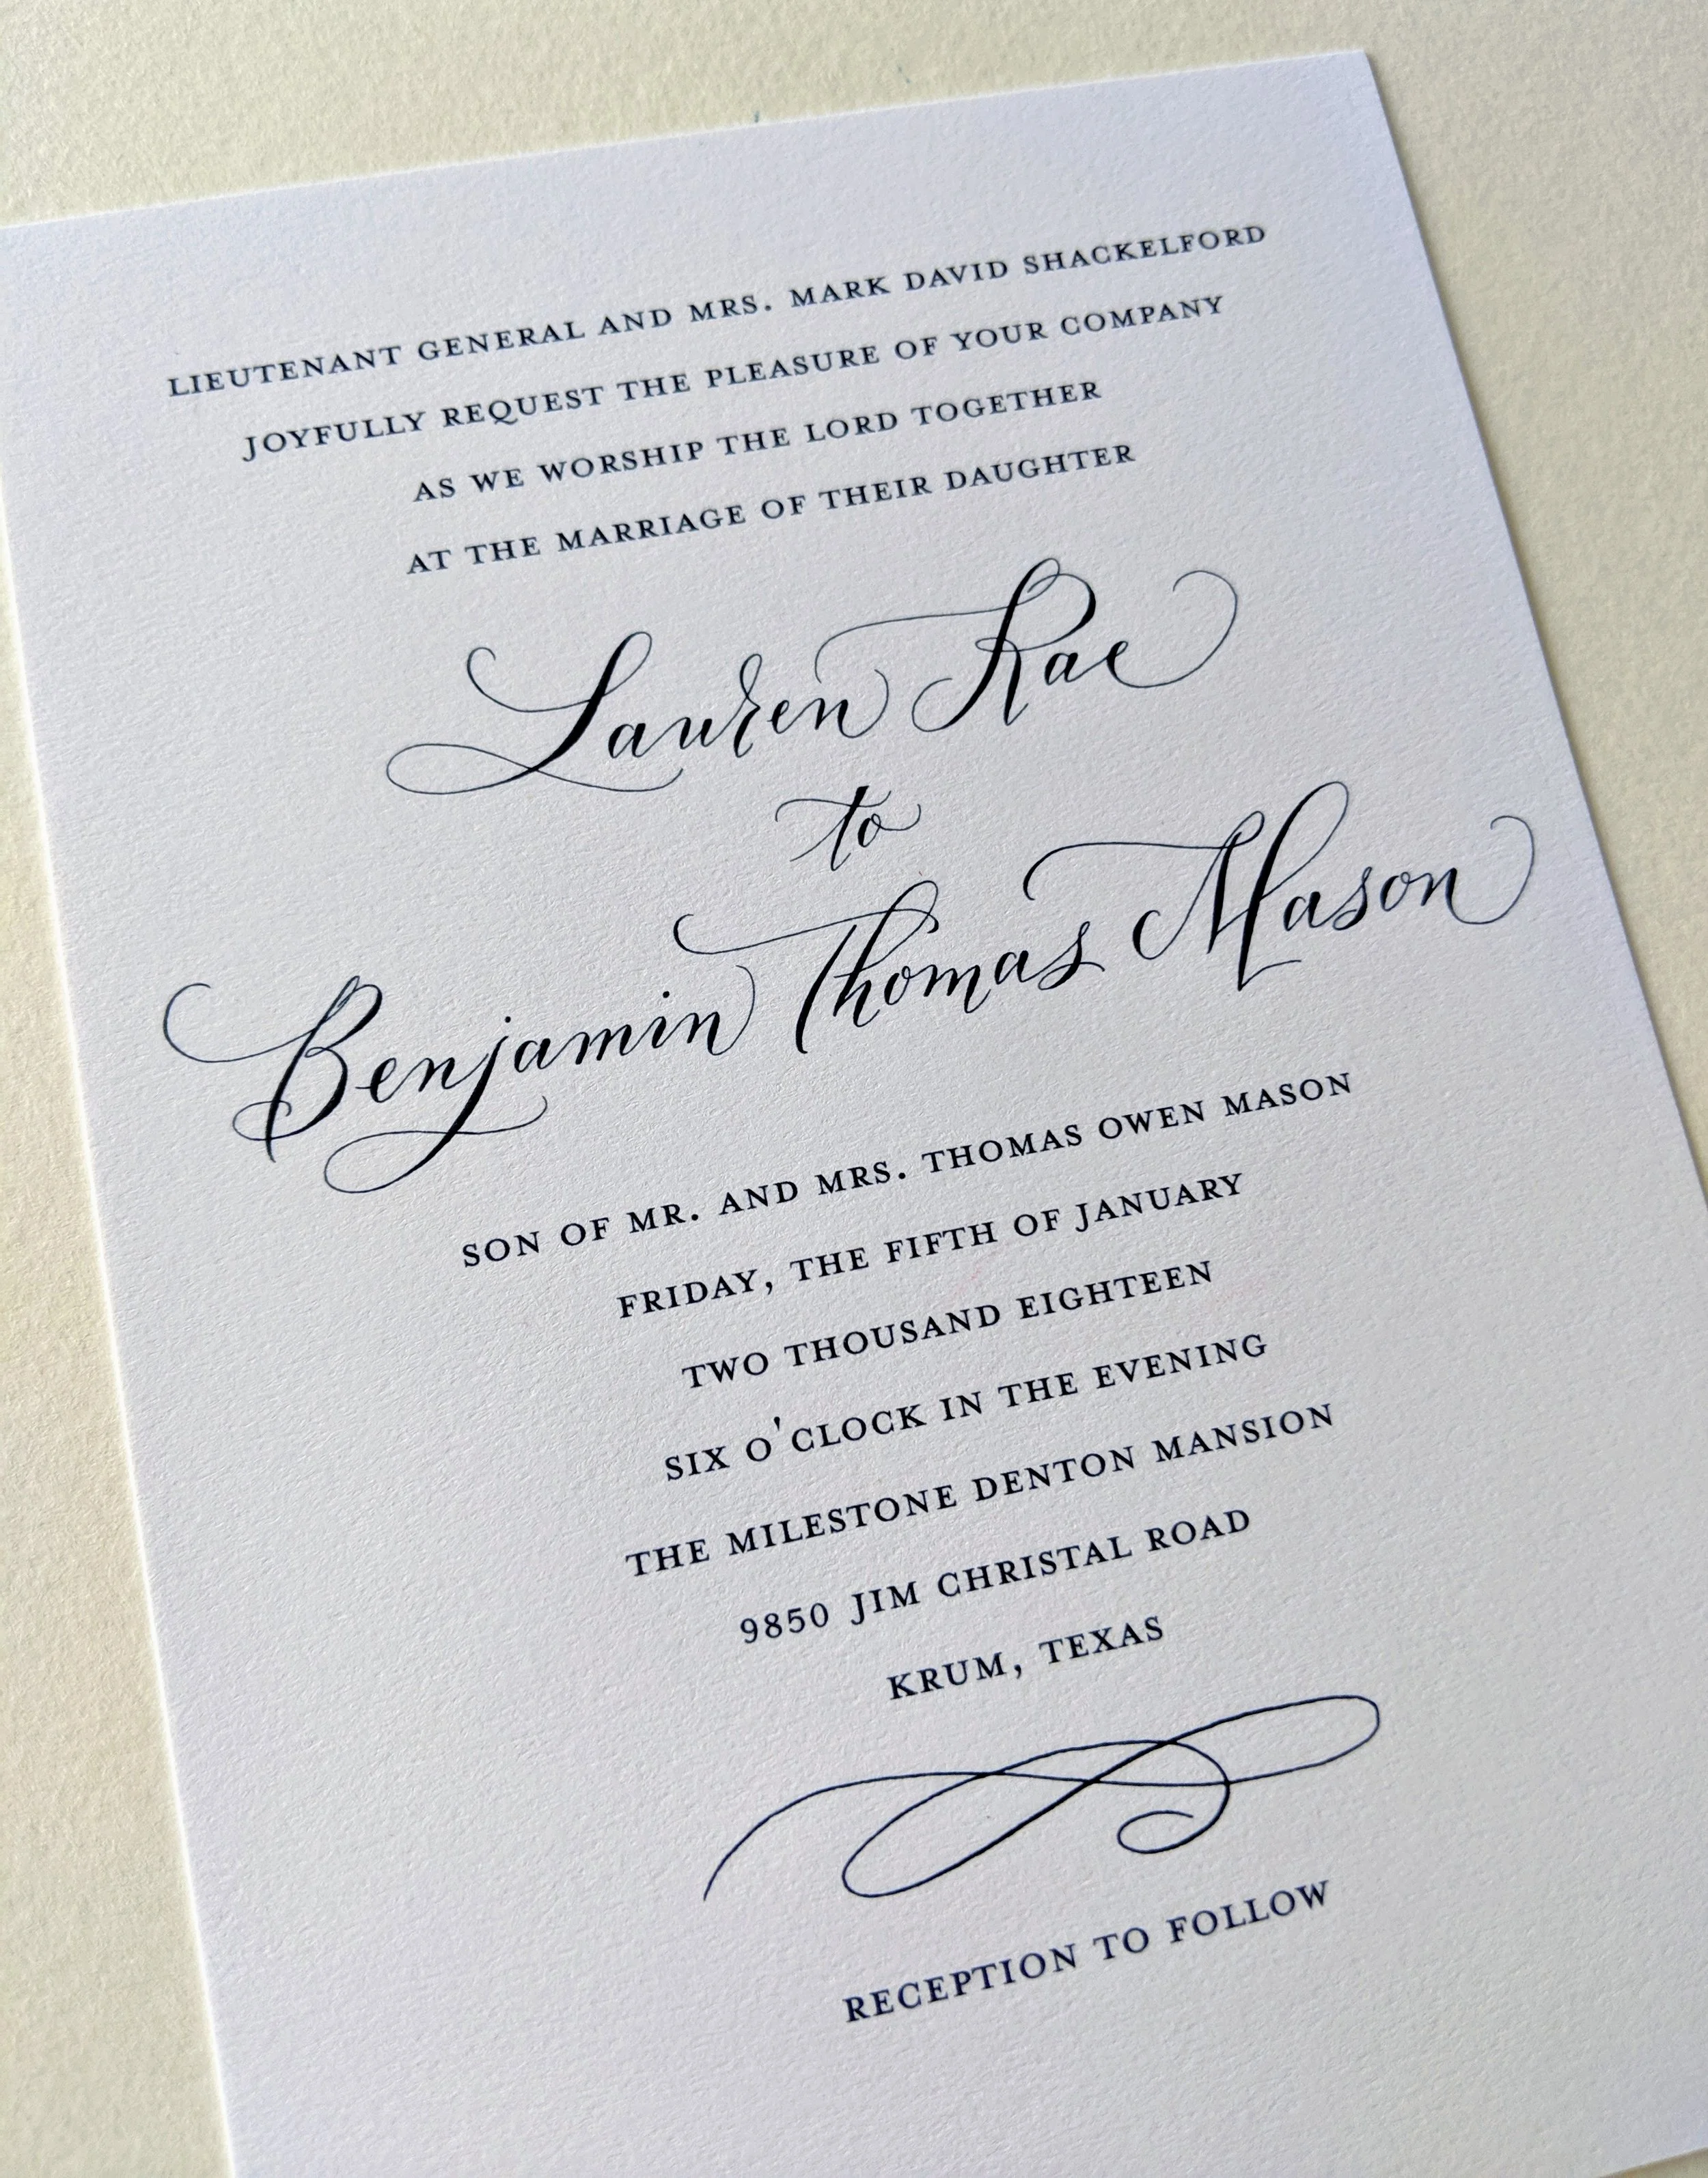 LIEUTENANT GENERAL AND MRS. MARK DAVID SHACKELFORD
JOYFULLY REQUEST THE PLEASURE OF YOUR COMPANY
AS WE WORSHIP THE LORD TOGETHER
AT THE MARRIAGE OF THEIR DAUGHTER
Lauren Rae
to
Benjamin Thomas Mason
SON OF MR. AND MRS. THOMAS OWEN MASON
FRIDAY, THE FIFTH OF JANUARY
TWO THOUSAND EIGHTEEN
SIX O'CLOCK IN THE EVENING
THE MILESTONE DENTON MANSION
9850 JIM CHRISTAL ROAD
KRUM, TEXAS
RECEPTION TO FOLLOW